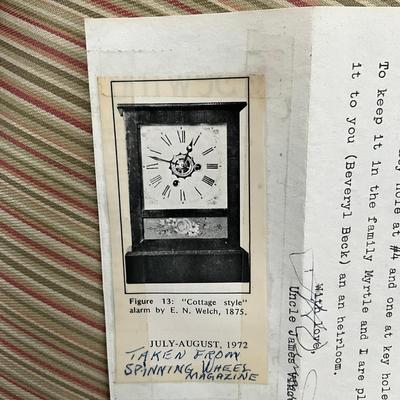 Figure 13: "Cottage style"
alarm by E. N. Welch, 1875.
JULY-AUGUST, 1972
TAKEN FROM
SPINNING WHEEL
MAGAZINE
hole at #4 and one at key hole
To keep it in the family Myrtle and I are
it to you (Beveryl Beck) an an heirloom.
With love,
Uncle James